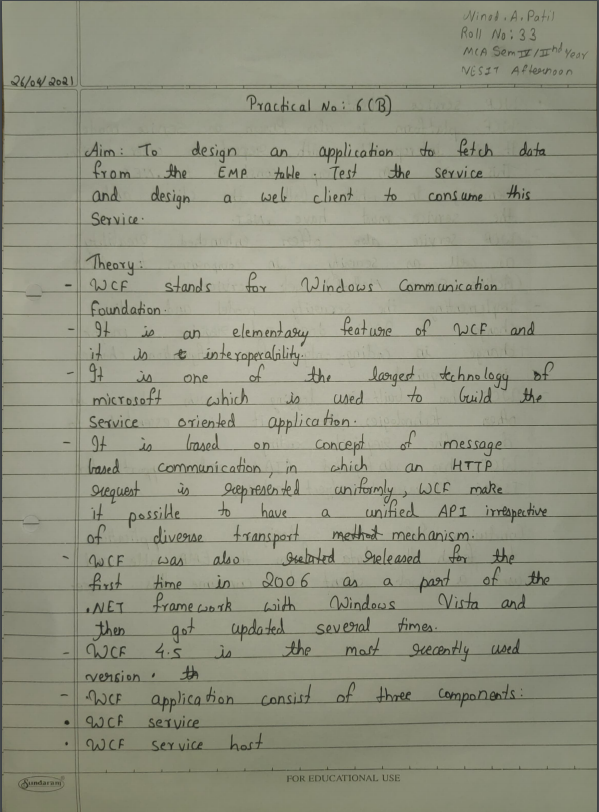 Vinod. A. Patil
Roll No: 33
MCA Sem IV/IInd Year
VESIT Afternoon
26/04/2021
Practical No: 6(B)
Aim: To design an application to fetch data
from the EMP table. Test the service
and design a web client to consume this
Service.
Theory:
- WCF stands for Windows Communication
Foundation.
- It is an elementary feature of WCF and
it is interoperability.
- It is one of the largest technology of
microsoft which is used to build the
Service oriented application.
- It is based on concept of message
based communication, in which an HTTP
request is represented uniformly, WCF make
it possible to have a unified API irrespective
of diverse transport method mechanism.
- WCF was also related released for the
first time in 2006 as a part of the
.NET framework with Windows Vista and
then got updated several times.
- WCF 4.5 is the most recently used
version. th
- WCF application consist of three components:
• WCF service
• WCF service host
Sundaram
FOR EDUCATIONAL USE